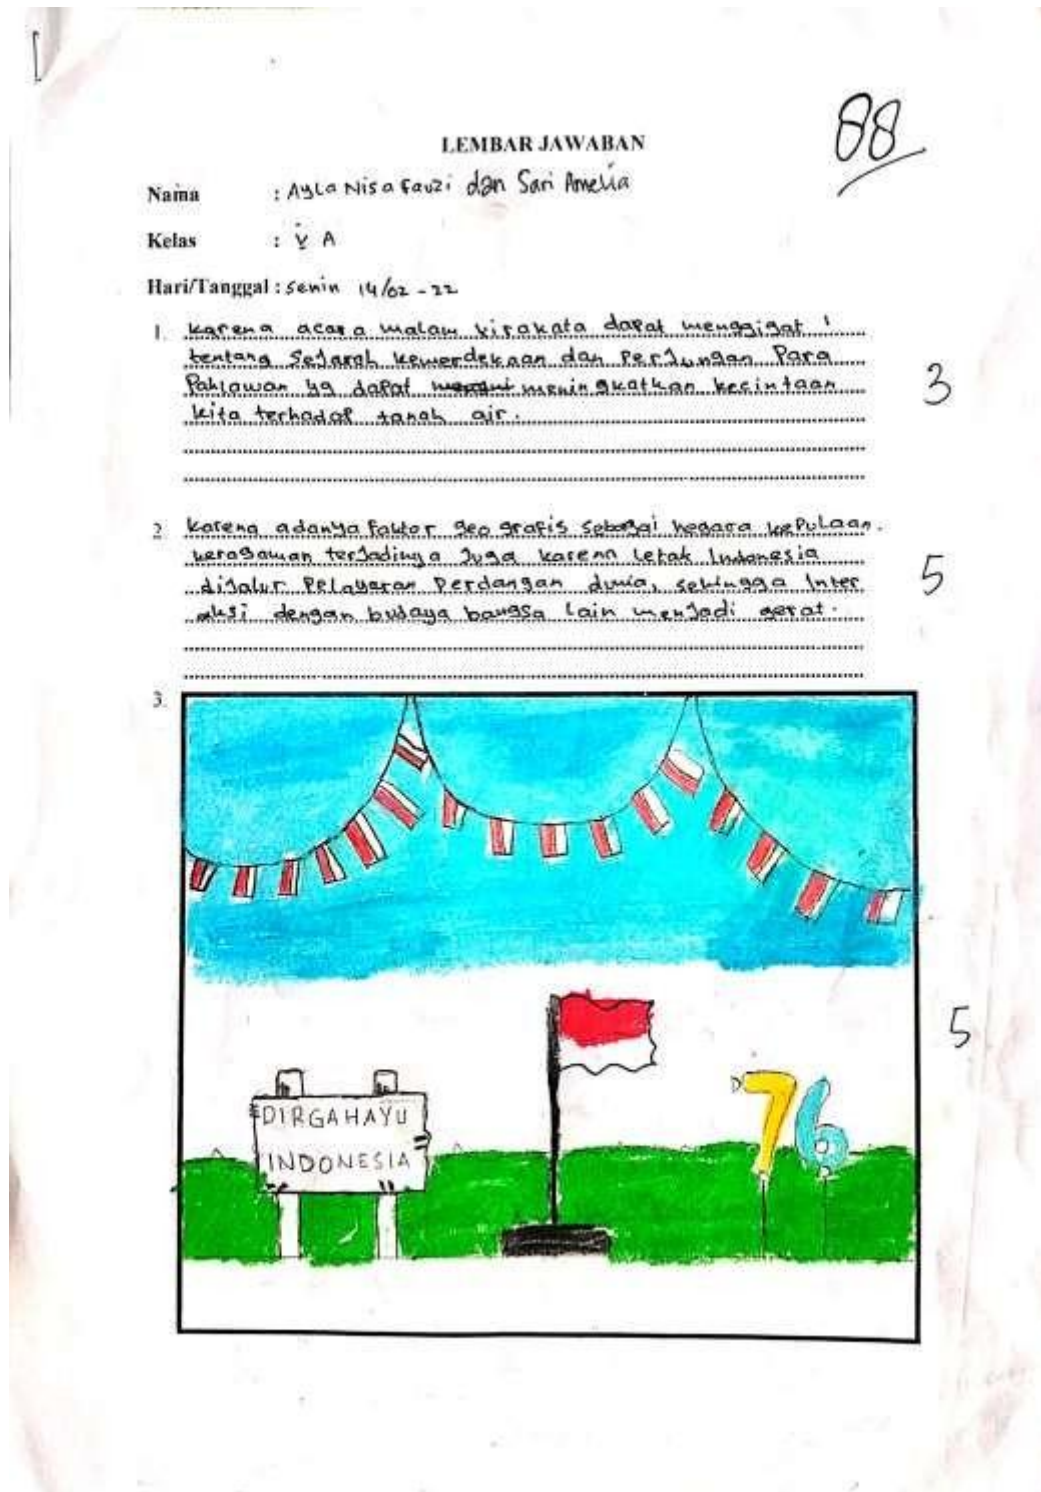 88
LEMBAR JAWABAN
Nama : Ayla Nisa Fauzi dan Sari Amelia
Kelas : V A
Hari/Tanggal : Senin 14/02-22
1. Karena acara malam tirakata dapat menggigat
tentang Sejarah kemerdekaan dan Perjungan Para
Pahlawan yg dapat meningkatkan kecintaan
kita terhadap tanah air.
3
2. Karena adanya faktor geografis sebagai negara kepulaan.
keragaman terjadinya Juga karena letak Indonesia
dijalur Pelayaran Perdangan dunia, sehingga Inter
aksi dengan budaya bangsa lain menjadi gerat.
5
3.
DIRGAHAYU
INDONESIA
76
5